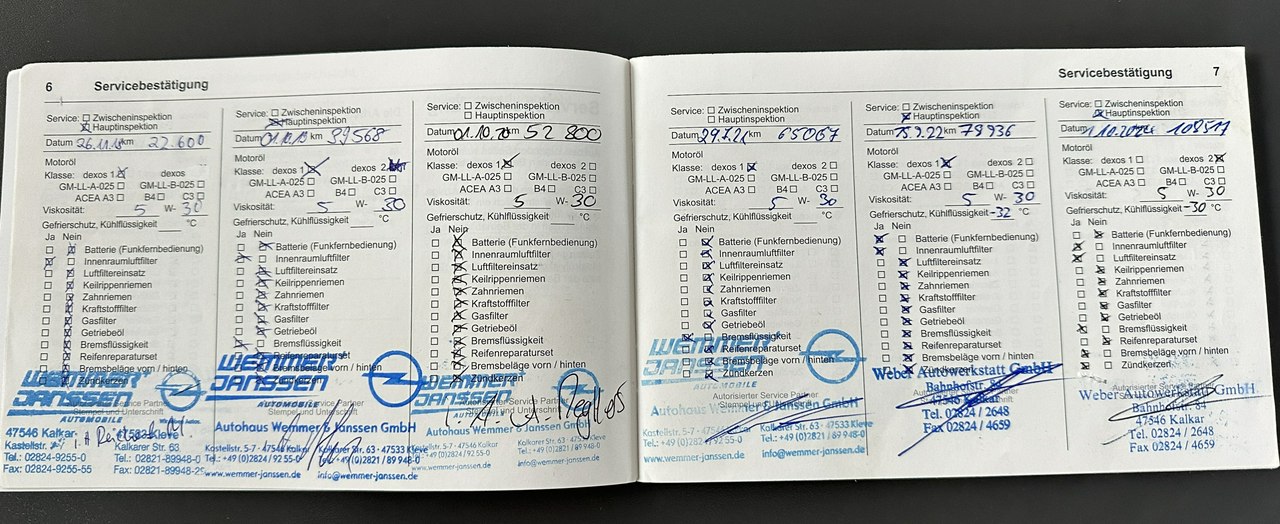 6 Servicebestätigung
Service: Zwischeninspektion
Hauptinspektion
Datum km 22.600
Motoröl
Klasse: dexos 1 dexos 2
GM-LL-A-025 GM-LL-B-025
ACEA A3 B4 C3
Viskosität: 5 W- 30
Gefrierschutz, Kühlflüssigkeit °C
Ja Nein
Batterie (Funkfernbedienung)
Innenraumluftfilter
Luftfiltereinsatz
Keilrippenriemen
Zahnriemen
Kraftstofffilter
Gasfilter
Getriebeöl
Bremsflüssigkeit
Reifenreparaturset
Bremsbeläge vorn / hinten
Zündkerzen
WEMMER
JANSSEN
AUTOMOBILE
47546 Kalkar
Kastellstr.
Kalkarer Str. 63
Tel.: 02824-9255-0
Tel.: 02821-89948-0
Fax: 02824-9255-55
Fax: 02821-89948-
Service: Zwischeninspektion
Hauptinspektion
Datum 01.10.19 km 39568
Motoröl
Klasse: dexos 1 dexos 2
GM-LL-A-025 GM-LL-B-025
ACEA A3 B4 C3
Viskosität: 5 W- 30
Gefrierschutz, Kühlflüssigkeit °C
Ja Nein
Batterie (Funkfernbedienung)
Innenraumluftfilter
Luftfiltereinsatz
Keilrippenriemen
Zahnriemen
Kraftstofffilter
Gasfilter
Getriebeöl
Bremsflüssigkeit
Reifenreparaturset
Bremsbeläge vorn / hinten
Zündkerzen
WEMMER
JANSSEN
AUTOMOBILE
Autohaus Wemmer & Janssen GmbH
Kastellstr. 5-7 - 47546 Kalkar Kalkarer Str. 63 - 47533 Kleve
Tel.: +49 (0)2824 / 92 55-0 Tel.: +49 (0)2821 / 89 948-0
www.wemmer-janssen.de info@wemmer-janssen.de
Service: Zwischeninspektion
Hauptinspektion
Datum 01.10.20 km 52 800
Motoröl
Klasse: dexos 1 dexos 2
GM-LL-A-025 GM-LL-B-025
ACEA A3 B4 C3
Viskosität: 5 W- 30
Gefrierschutz, Kühlflüssigkeit °C
Ja Nein
Batterie (Funkfernbedienung)
Innenraumluftfilter
Luftfiltereinsatz
Keilrippenriemen
Zahnriemen
Kraftstofffilter
Gasfilter
Getriebeöl
Bremsflüssigkeit
Reifenreparaturset
Bremsbeläge vorn / hinten
Zündkerzen
WEMMER
JANSSEN
AUTOMOBILE
Autorisierter Service Partner
Stempel und Unterschrift
Kastellstr. 5-7 - 47546 Kalkar Kalkarer Str. 63 - 47533 Kleve
Tel.: +49 (0)2824 / 92 55-0 Tel.: +49 (0)2821 / 89 948-0
www.wemmer-janssen.de info@wemmer-janssen.de
Servicebestätigung 7
Service: Zwischeninspektion
Hauptinspektion
Datum 29.7.21 km 65067
Motoröl
Klasse: dexos 1 dexos 2
GM-LL-A-025 GM-LL-B-025
ACEA A3 B4 C3
Viskosität: 5 W- 30
Gefrierschutz, Kühlflüssigkeit °C
Ja Nein
Batterie (Funkfernbedienung)
Innenraumluftfilter
Luftfiltereinsatz
Keilrippenriemen
Zahnriemen
Kraftstofffilter
Gasfilter
Getriebeöl
Bremsflüssigkeit
Reifenreparaturset
Bremsbeläge vorn / hinten
Zündkerzen
WEMMER
JANSSEN
AUTOMOBILE
Autorisierter Service Partner
Stempel und Unterschrift
Autohaus Wemmer & Janssen GmbH
Kastellstr. 5-7 - 47546 Kalkar Kalkarer Str. 63 - 47533 Kleve
Tel.: +49 (0)2824 / 92 55-0 Tel.: +49 (0)2821 / 89 948-0
www.wemmer-janssen.de info@wemmer-janssen.de
Service: Zwischeninspektion
Hauptinspektion
Datum 15.9.22 km 79936
Motoröl
Klasse: dexos 1 dexos 2
GM-LL-A-025 GM-LL-B-025
ACEA A3 B4 C3
Viskosität: 5 W- 30
Gefrierschutz, Kühlflüssigkeit -32 °C
Ja Nein
Batterie (Funkfernbedienung)
Innenraumluftfilter
Luftfiltereinsatz
Keilrippenriemen
Zahnriemen
Kraftstofffilter
Gasfilter
Getriebeöl
Bremsflüssigkeit
Reifenreparaturset
Bremsbeläge vorn / hinten
Zündkerzen
Weber Autowerkstatt GmbH
Bahnhofstr. 84
47546 Kalkar
Tel. 02824 / 2648
Fax 02824 / 4659
Service: Zwischeninspektion
Hauptinspektion
Datum km 108511
Motoröl
Klasse: dexos 1 dexos 2
GM-LL-A-025 GM-LL-B-025
ACEA A3 B4 C3
Viskosität: 5 W- 30
Gefrierschutz, Kühlflüssigkeit -30 °C
Ja Nein
Batterie (Funkfernbedienung)
Innenraumluftfilter
Luftfiltereinsatz
Keilrippenriemen
Zahnriemen
Kraftstofffilter
Gasfilter
Getriebeöl
Bremsflüssigkeit
Reifenreparaturset
Bremsbeläge vorn / hinten
Zündkerzen
Autorisierter Service Partner
Weber Autowerkstatt GmbH
Bahnhofstr. 84
47546 Kalkar
Tel. 02824 / 2648
Fax 02824 / 4659